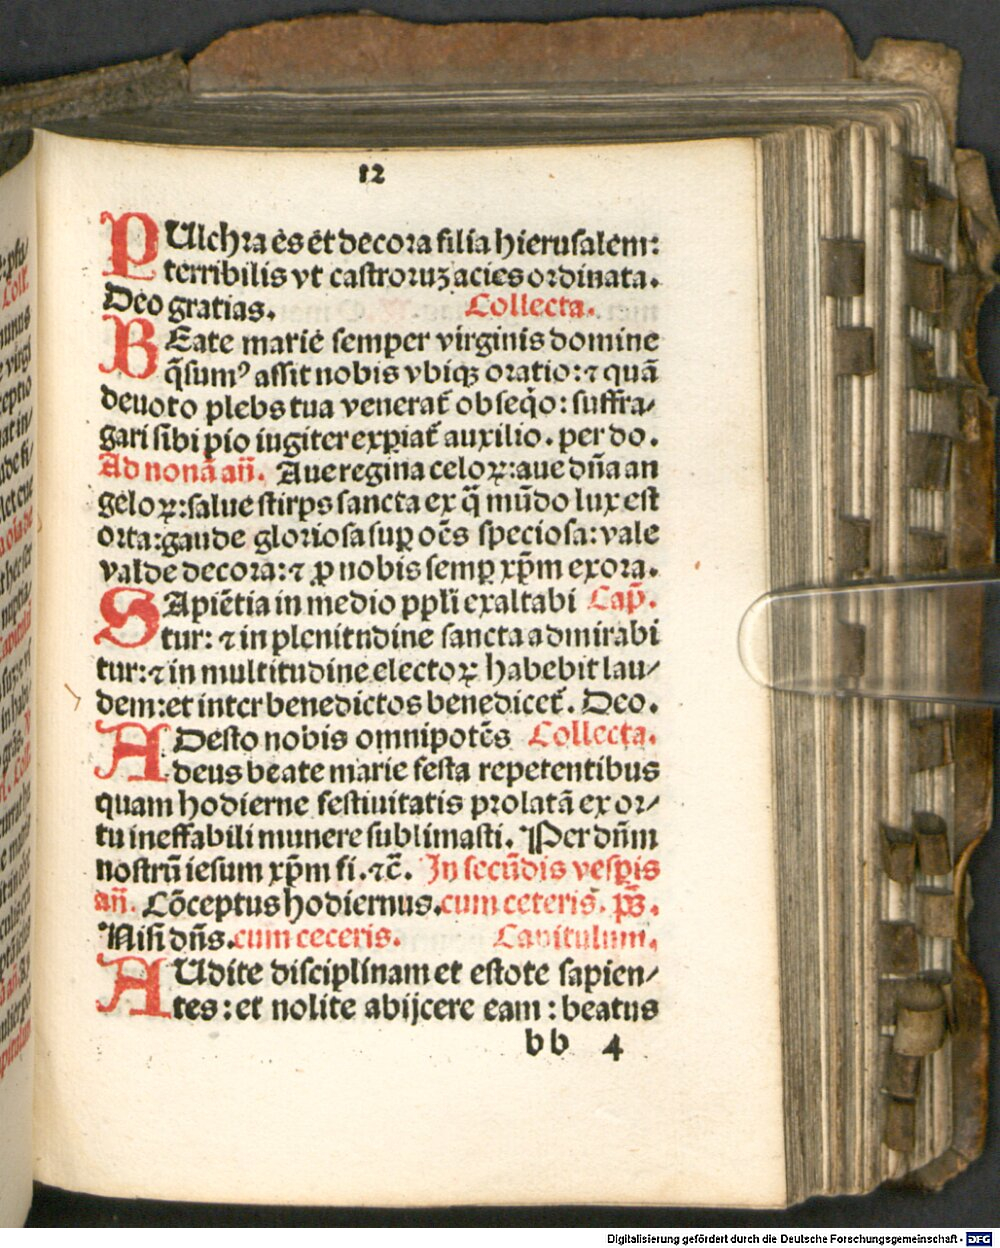 12
PUlchra es et decora filia hierusalem:
terribilis vt castroruꝫ acies ordinata.
Deo gratias. Collecta.
BEate marie semper virginis domine
q̄sumꝰ assit nobis vbiqꝫ oratio: ⁊ quā
deuoto plebs tua venerat̄ obseq̇o: suffra⸗
gari sibi pio iugiter expiat̄ auxilio. per do.
Ad nonā añ. Aue regina celoꝝ: aue dn̄a an
geloꝝ: salue stirps sancta ex q̄ mūdo lux est
orta: gaude gloriosa suꝑ oēs speciosa: vale
valde decora: ⁊ ꝓ nobis semꝑ xp̄m exora.
SApiētia in medio ppl̄i exaltabi Cap̄.
tur: ⁊ in plenitndine sancta admirabi
tur: ⁊ in multitudine electoꝝ habebit lau⸗
dem: et inter benedictos benedicet̄. Deo.
ADesto nobis omnipotēs Collecta.
deus beate marie festa repetentibus
quam hodierne festiuitatis prolatā ex or⸗
tu ineffabili munere sublimasti. Per dn̄m
nostrū iesum xp̄m fi. ⁊c̄. In secūdis vesꝑis
añ. Cōceptus hodiernus. cum ceteris. ps̄.
Nisi dn̄s. cum ceceris. Capitulum.
AUdite disciplinam et estote sapien⸗
tes: et nolite abijcere eam: beatus
bb 4
Digitalisierung gefördert durch die Deutsche Forschungsgemeinschaft - DFG